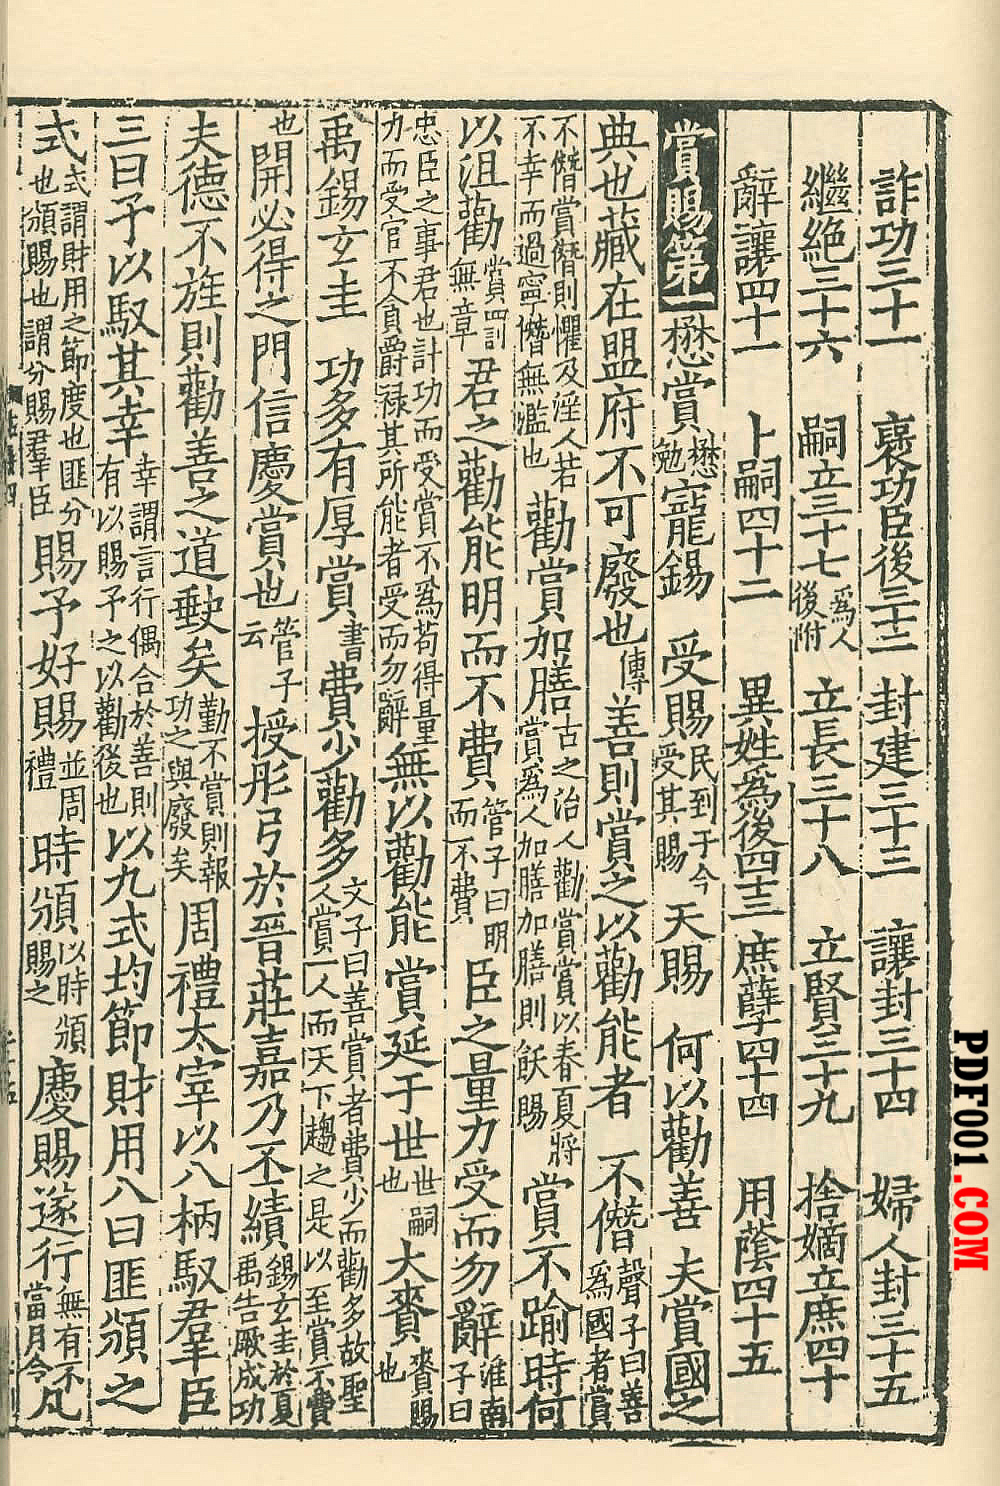 詐功三十一　褒功臣後三十二　封建三十三　讓封三十四　婦人封三十五
繼絶三十六　嗣立三十七爲人後附　立長三十八　立賢三十九　捨嫡立庶四十
辭讓四十一　卜嗣四十二　異姓爲後四十三　庶孽四十四　用蔭四十五
賞賜第一　懋賞懋勉寵錫　受賜民到于今受其賜　天賜　何以勸善　夫賞國之
典也藏在盟府不可廢也傳　善則賞之以勸能者　不僭聲子曰善爲國者賞
不僭賞僭則懼及淫人若不幸而過寧僭無濫也　勸賞加膳古之治人勸賞賞以春夏將賞爲人加膳加膳則飫賜　賞不踰時何
以沮勸賞罰無章　君之勸能明而不費管子曰明而不費　臣之量力受而勿辭淮南子曰
忠臣之事君也計功而受賞不爲苟得量力而受官不貪爵祿其所能者受而勿辭　無以勸能　賞延于世世嗣也　大賚賚賜也
禹錫玄圭　功多有厚賞書　費少勸多文子曰善賞者費少而勸多故聖人賞一人而天下趨之是以至賞不費
也開必得之門信慶賞也管子云　授彤弓於晉莊嘉乃丕績錫玄圭於夏禹告厥成功
夫德不旌則勸善之道缺矣勤不賞則報功之典廢矣　周禮太宰以八柄馭羣臣
三曰予以馭其幸幸謂言行偶合於善則有以賜予之以勸後也　以九式均節財用八曰匪頒之
式式謂財用之節度也匪分也頒賜也謂分賜羣臣　賜予好賜並周禮　時頒以時頒賜之　慶賜遂行無有不當月令　凡
PDF001.COM